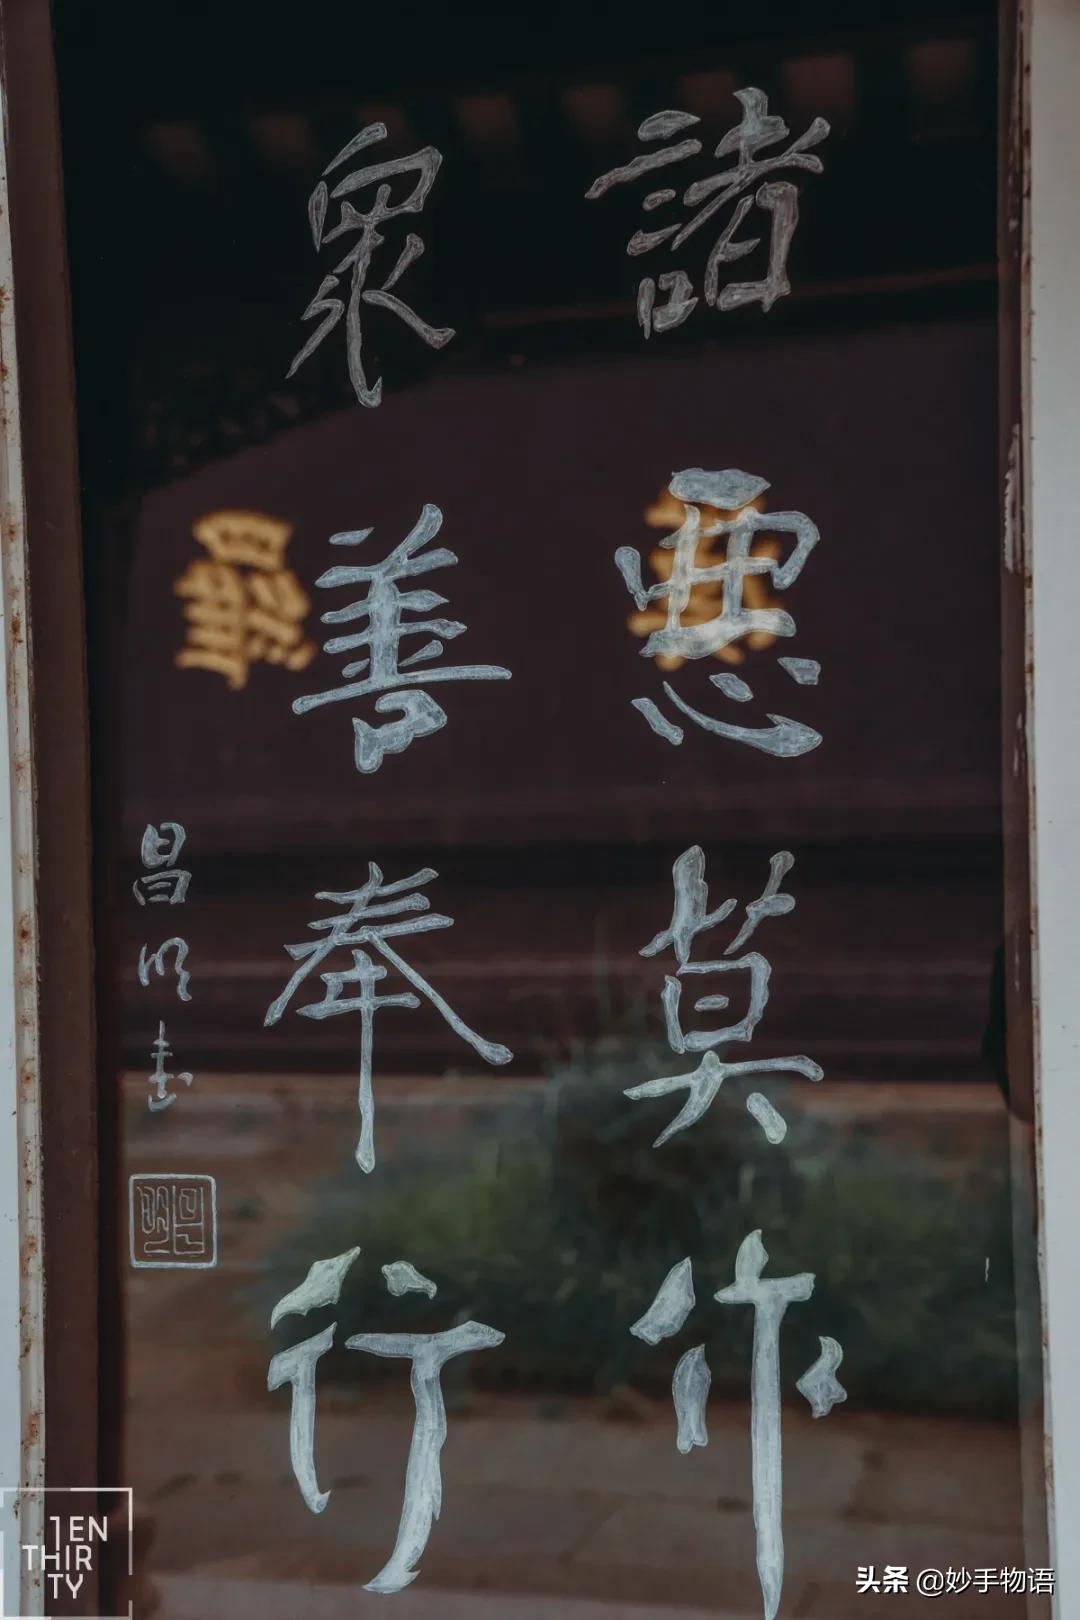 諸惡莫作
衆善奉行
昌明書
1EN
THIR
TY
头条 @妙手物语